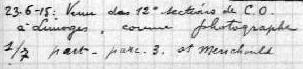 23-6-15: Venu des 12e sections de C.O.
à Limoges, comme photographe
1/7 part. parc. 3. St Menehould